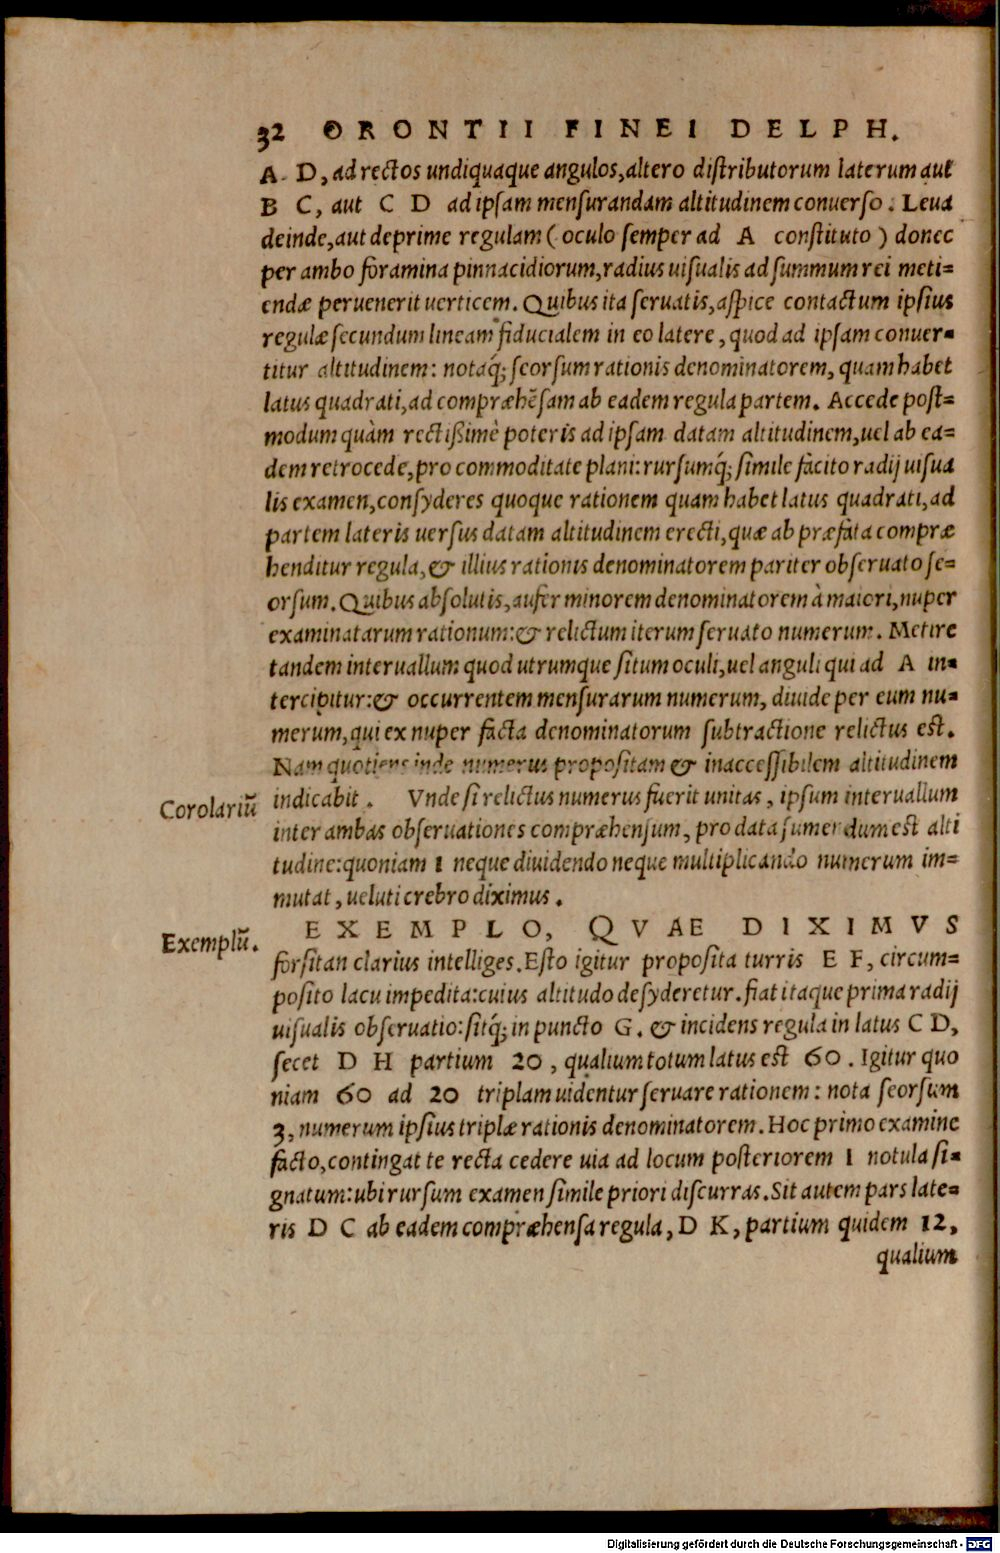 32 ORONTII FINEI DELPH.
A D, ad rectos undiquaque angulos, altero distributorum laterum aut
B C, aut C D ad ipsam mensurandam altitudinem conuerso. Leua
deinde, aut deprime regulam (oculo semper ad A constituto) donec
per ambo foramina pinnacidiorum, radius uisualis ad summum rei meti=
endæ peruenerit uerticem. Quibus ita seruatis, aspice contactum ipsius
regulæ secundum lineam fiducialem in eo latere, quod ad ipsam conuer=
titur altitudinem: notaq́; seorsum rationis denominatorem, quam habet
latus quadrati, ad compræhēsam ab eadem regula partem. Accede post=
modum quàm rectißimè poteris ad ipsam datam altitudinem, uel ab ea=
dem retrocede, pro commoditate plani: rursumq́; simile facito radij uisua
lis examen, consyderes quoque rationem quam habet latus quadrati, ad
partem lateris uersus datam altitudinem erecti, quæ ab præfata compræ
henditur regula, & illius rationis denominatorem pariter obseruato se=
orsum. Quibus absolutis, aufer minorem denominatorem à maiori, nuper
examinatarum rationum: & relictum iterum seruato numerum. Metire
tandem interuallum quod utrumque situm oculi, uel anguli qui ad A in=
tercipitur: & occurrentem mensurarum numerum, diuide per eum nu=
merum, qui ex nuper facta denominatorum subtractione relictus est.
Nam quotiens inde numerus propositam & inaccessibilem altitudinem
Corolariū indicabit. Vnde si relictus numerus fuerit unitas, ipsum interuallum
inter ambas obseruationes compræhensum, pro data sumendum est alti
tudine: quoniam 1 neque diuidendo neque multiplicando numerum im=
mutat, ueluti crebro diximus.
Exemplū. EXEMPLO, QVAE DIXIMVS
forsitan clarius intelliges. Esto igitur proposita turris E F, circum=
posito lacu impedita: cuius altitudo desyderetur. fiat itaque prima radij
uisualis obseruatio: sitq́; in puncto G. & incidens regula in latus C D,
secet D H partium 20, qualium totum latus est 60. Igitur quo
niam 60 ad 20 triplam uidentur seruare rationem: nota seorsum
3, numerum ipsius triplæ rationis denominatorem. Hoc primo examine
facto, contingat te recta cedere uia ad locum posteriorem I notula si=
gnatum: ubi rursum examen simile priori discurras. Sit autem pars late=
ris D C ab eadem compræhensa regula, D K, partium quidem 12,
qualium
Digitalisierung gefördert durch die Deutsche Forschungsgemeinschaft - DFG